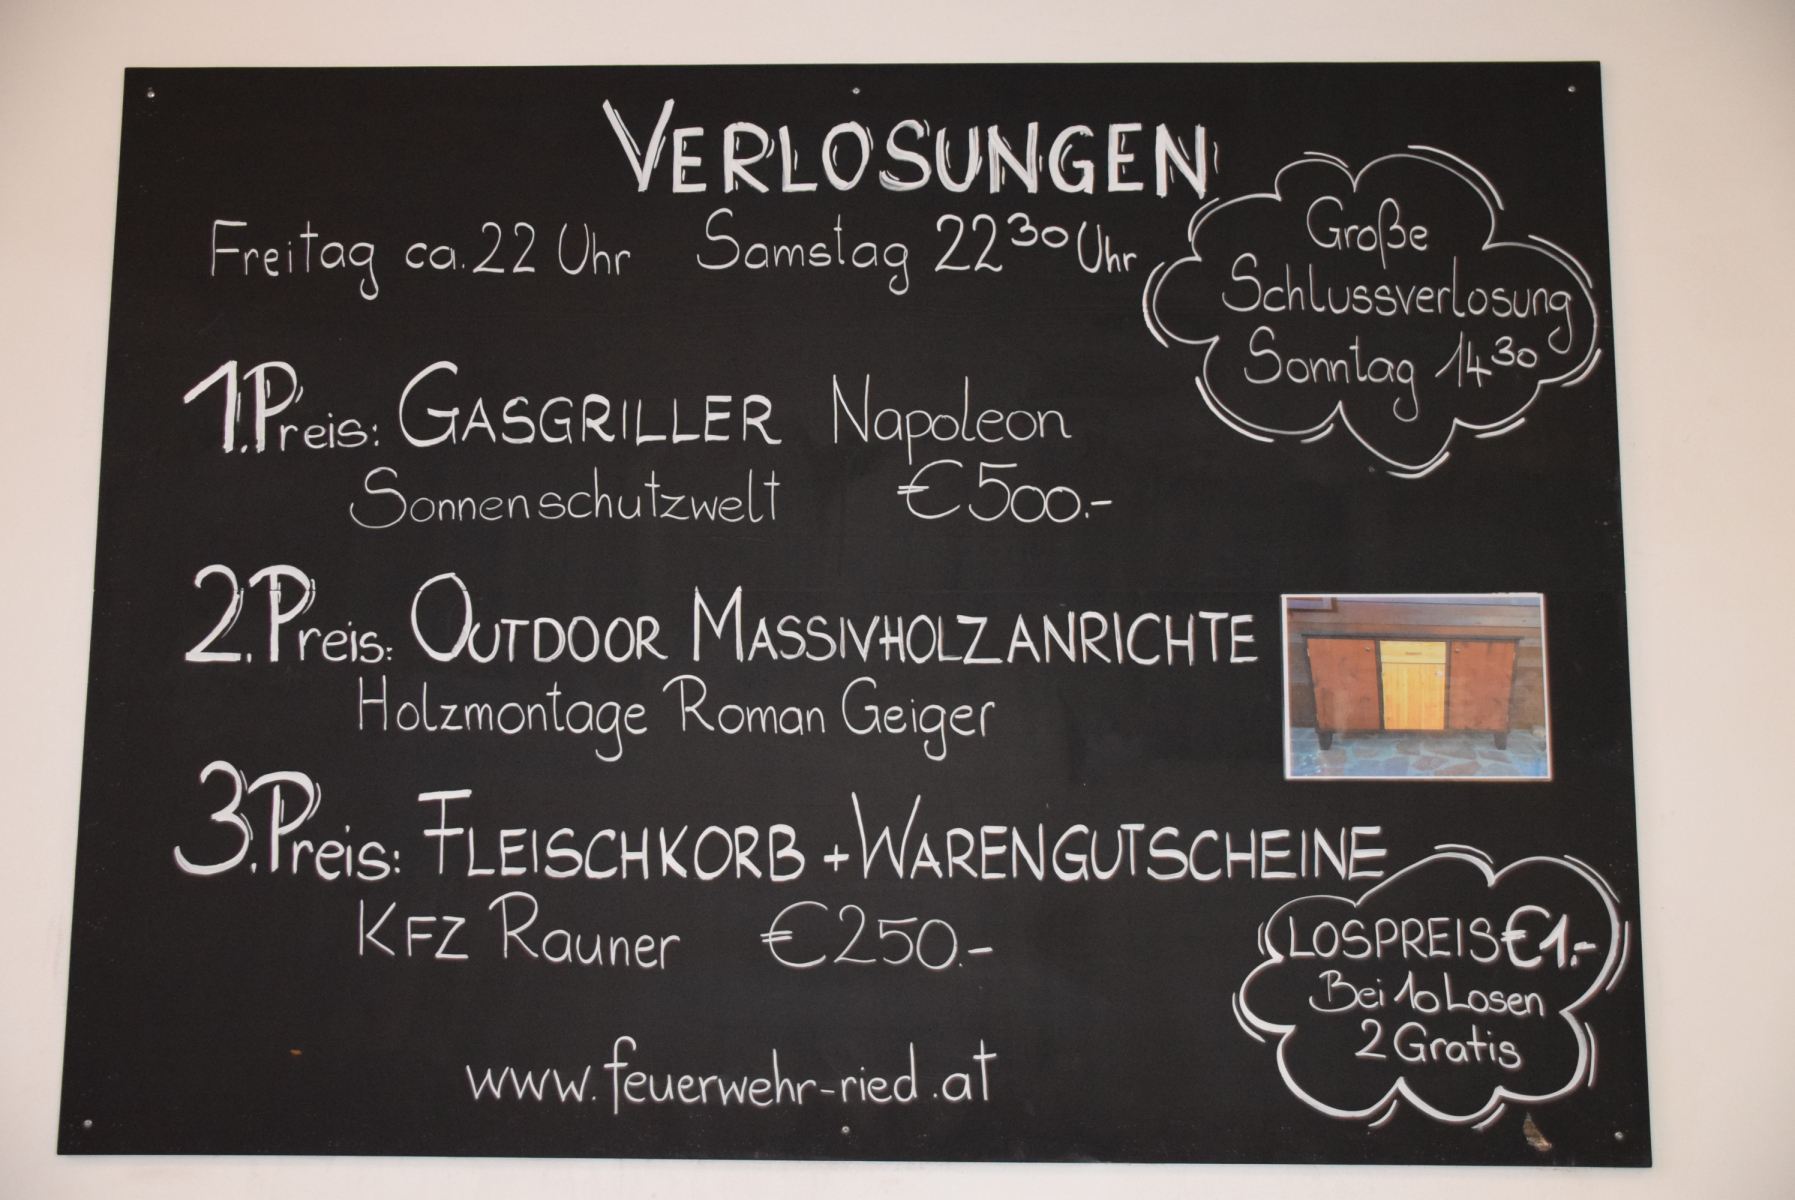 VERLOSUNGEN
Freitag ca. 22 Uhr Samstag 22³⁰ Uhr
Große
Schlussverlosung
Sonntag 14³⁰
1. Preis: GASGRILLER Napoleon
Sonnenschutzwelt €500.-
2. Preis: OUTDOOR MASSIVHOLZANRICHTE
Holzmontage Roman Geiger
3. Preis: FLEISCHKORB + WARENGUTSCHEINE
KFZ Rauner €250.-
LOSPREIS €1.-
Bei 10 Losen
2 Gratis
www.feuerwehr-ried.at